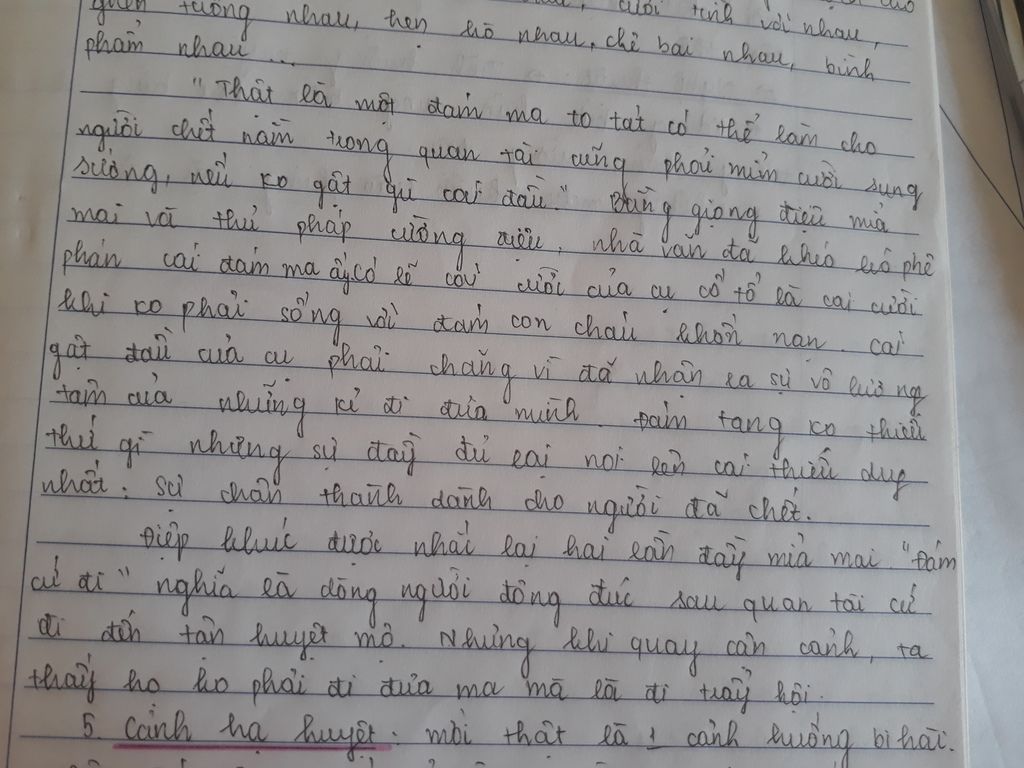 nhau, cười tình với nhau,
tưởng nhau, hẹn hò nhau, chê bai nhau, bình
phẩm nhau...
"Thật là một đám ma to tát có thể làm cho
người chết nằm trong quan tài cũng phải mỉm cười sung
sướng, nếu ko gật gù cái đầu" Bằng giọng điệu mỉa
mai và thủ pháp cường điệu, nhà văn đã khéo léo phê
phán cái đám ma ấy có lẽ cái cười của cụ cố tổ là cái cười
khi ko phải sống với đám con cháu khốn nạn. cái
gật đầu của cụ phải chăng vì đã nhận ra sự vô lương
tâm của những kẻ đi đưa mình. Đám tang ko thiếu
thứ gì nhưng sự đầy đủ lại nói lên cái thiếu duy
nhất: sự chân thành dành cho người đã chết.
Điệp khúc được nhắc lại hai lần đầy mỉa mai. "Đám
cứ đi" nghĩa là dòng người đông đúc sau quan tài cứ
đi đến tận huyệt mộ. Nhưng khi quay cận cảnh, ta
thấy họ ko phải đi đưa ma mà là đi trẩy hội.
5. Cảnh hạ huyệt: mới thật là 1 cảnh tượng bi hài.